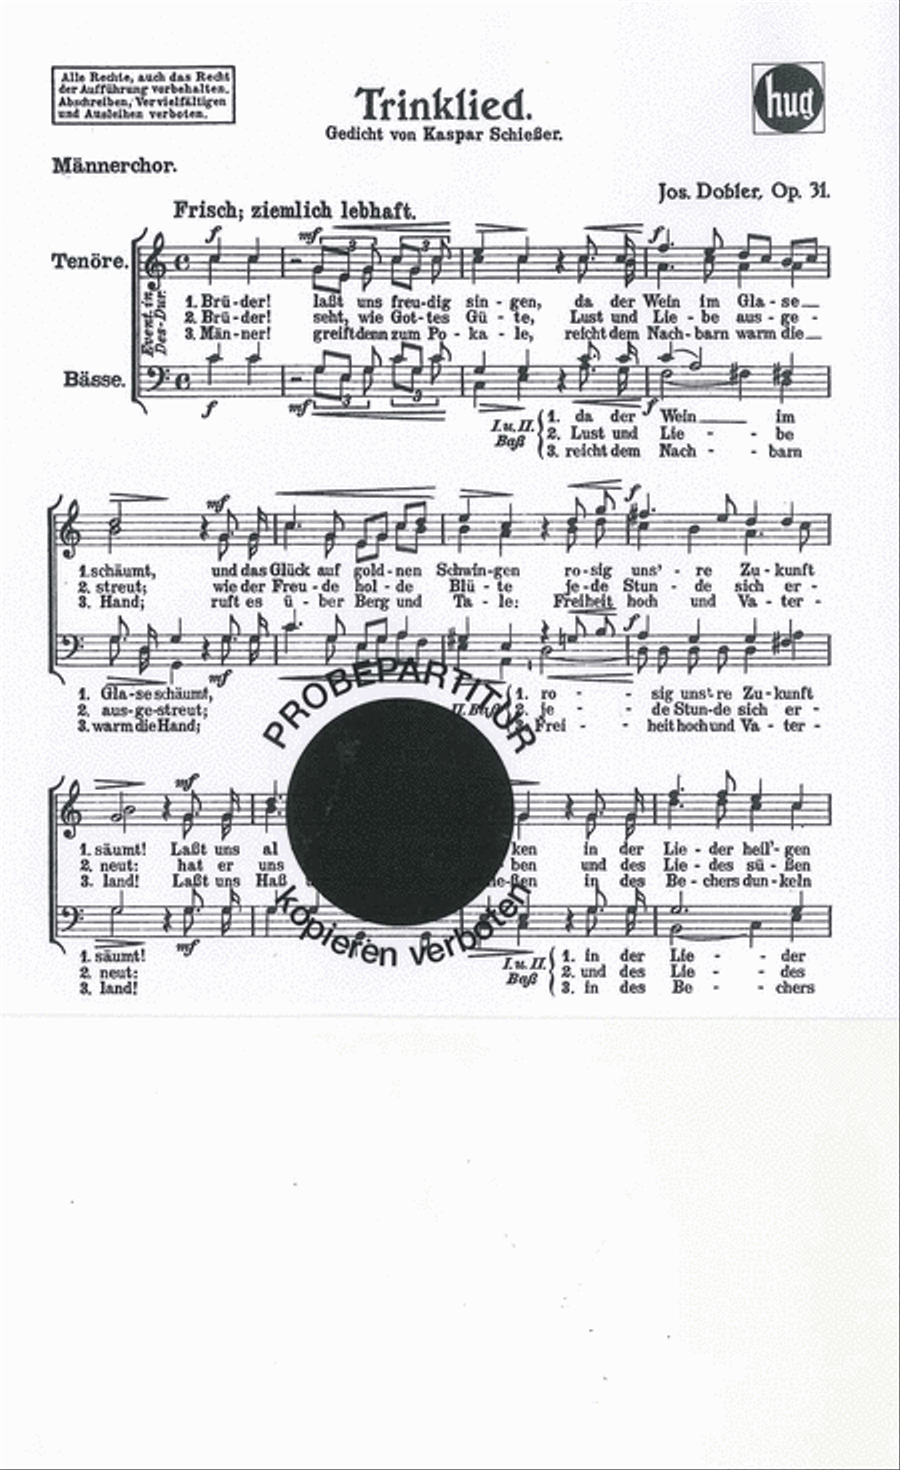 Alle Rechte, auch das Recht
der Aufführung vorbehalten.
Abschreiben, Vervielfältigen
und Ausleihen verboten.
hug
Trinklied.
Gedicht von Kaspar Schießer.
Männerchor.
Jos. Dobler, Op. 31.
Frisch; ziemlich lebhaft.
f mf f
Tenöre.
Event. in
Des-Dur.
1. Brü - der! laßt uns freu-dig sin - gen, da der Wein im Gla - se
2. Brü - der! seht, wie Got-tes Gü - te, Lust und Lie - be aus - ge -
3. Män - ner! greift denn zum Po - ka - le, reicht dem Nach - barn warm die
Bässe.
f mf f
I. u. II. Baß
1. da der Wein im
2. Lust und Lie - - be
3. reicht dem Nach - - barn
mf f
1. schäumt, und das Glück auf gold - nen Schwin-gen ro - sig uns' - re Zu - kunft
2. streut; wie der Freu - de hol - de Blü - te je - de Stun - de sich er -
3. Hand; ruft es ü - ber Berg und Ta - le: Freiheit hoch und Va - ter -
mf f
1. Gla - se schäumt,
2. aus-ge-streut;
3. warm die Hand;
1. ro - - sig uns're Zu - kunft
2. je - - de Stun-de sich er -
Frei - - heit hoch und Va - ter -
PROBEPARTITUR
mf
1. säumt! Laßt uns al ken in der Lie - der heil'- gen
2. neut: hat er uns ben und des Lie - des sü - ßen
3. land! Laßt uns Haß ßen in des Be - chers dun - keln
mf
kopieren verboten
1. säumt!
2. neut:
3. land!
I. u. II. Baß
1. in der Lie - - der
2. und des Lie - - des
3. in des Be - - chers